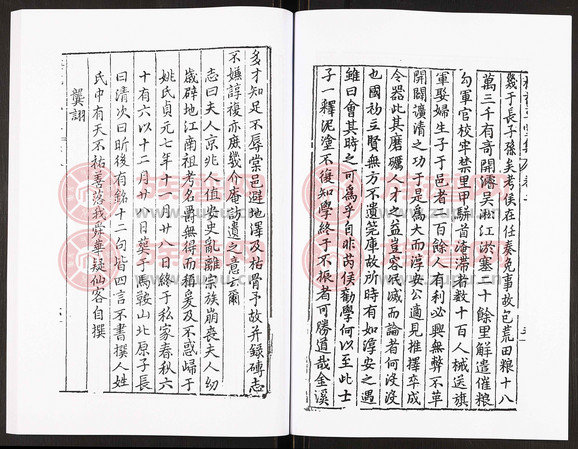 幾于長子孫矣考侯在任奏免事故包荒田粮十八
萬三千有奇開濬吴淞江淤塞八十餘里解遣催粮
勾軍官校牢禁里甲駢首淹滯者數十百人械送旗
軍娶婦生子于邑者二百餘人有利必興無弊不革
開闢議清之功于是爲大而淳安公適見推擇卒成
令器此其磨礪人才之益豈容泯滅而論者何汲汲
也國初立賢無方不遺筦庫故所時有如淳安之遇
雖曰會其時之可爲乎自非芮侯勸學何以至此士
子一釋泥塗不復知學終于不振者可勝道哉金溪
多才知足不辱棠邑避地澤及枯骨予故并録磚志
不嫌諄複亦庶幾介庵訪遺之意云爾
志曰夫人京兆人值安史亂離宗族崩喪夫人幼
歲辟地江南祖考名爵無得而稱爰及不惑歸于
姚氏貞元七年十一月廿八日終于私家春秋六
十有六以十二月廿八日葬于馬鞍山北原子長
曰清次曰昕後有銘十二句皆四言不書撰人姓
氏中有天不祐善落我舜華疑仙客自撰
龔詡